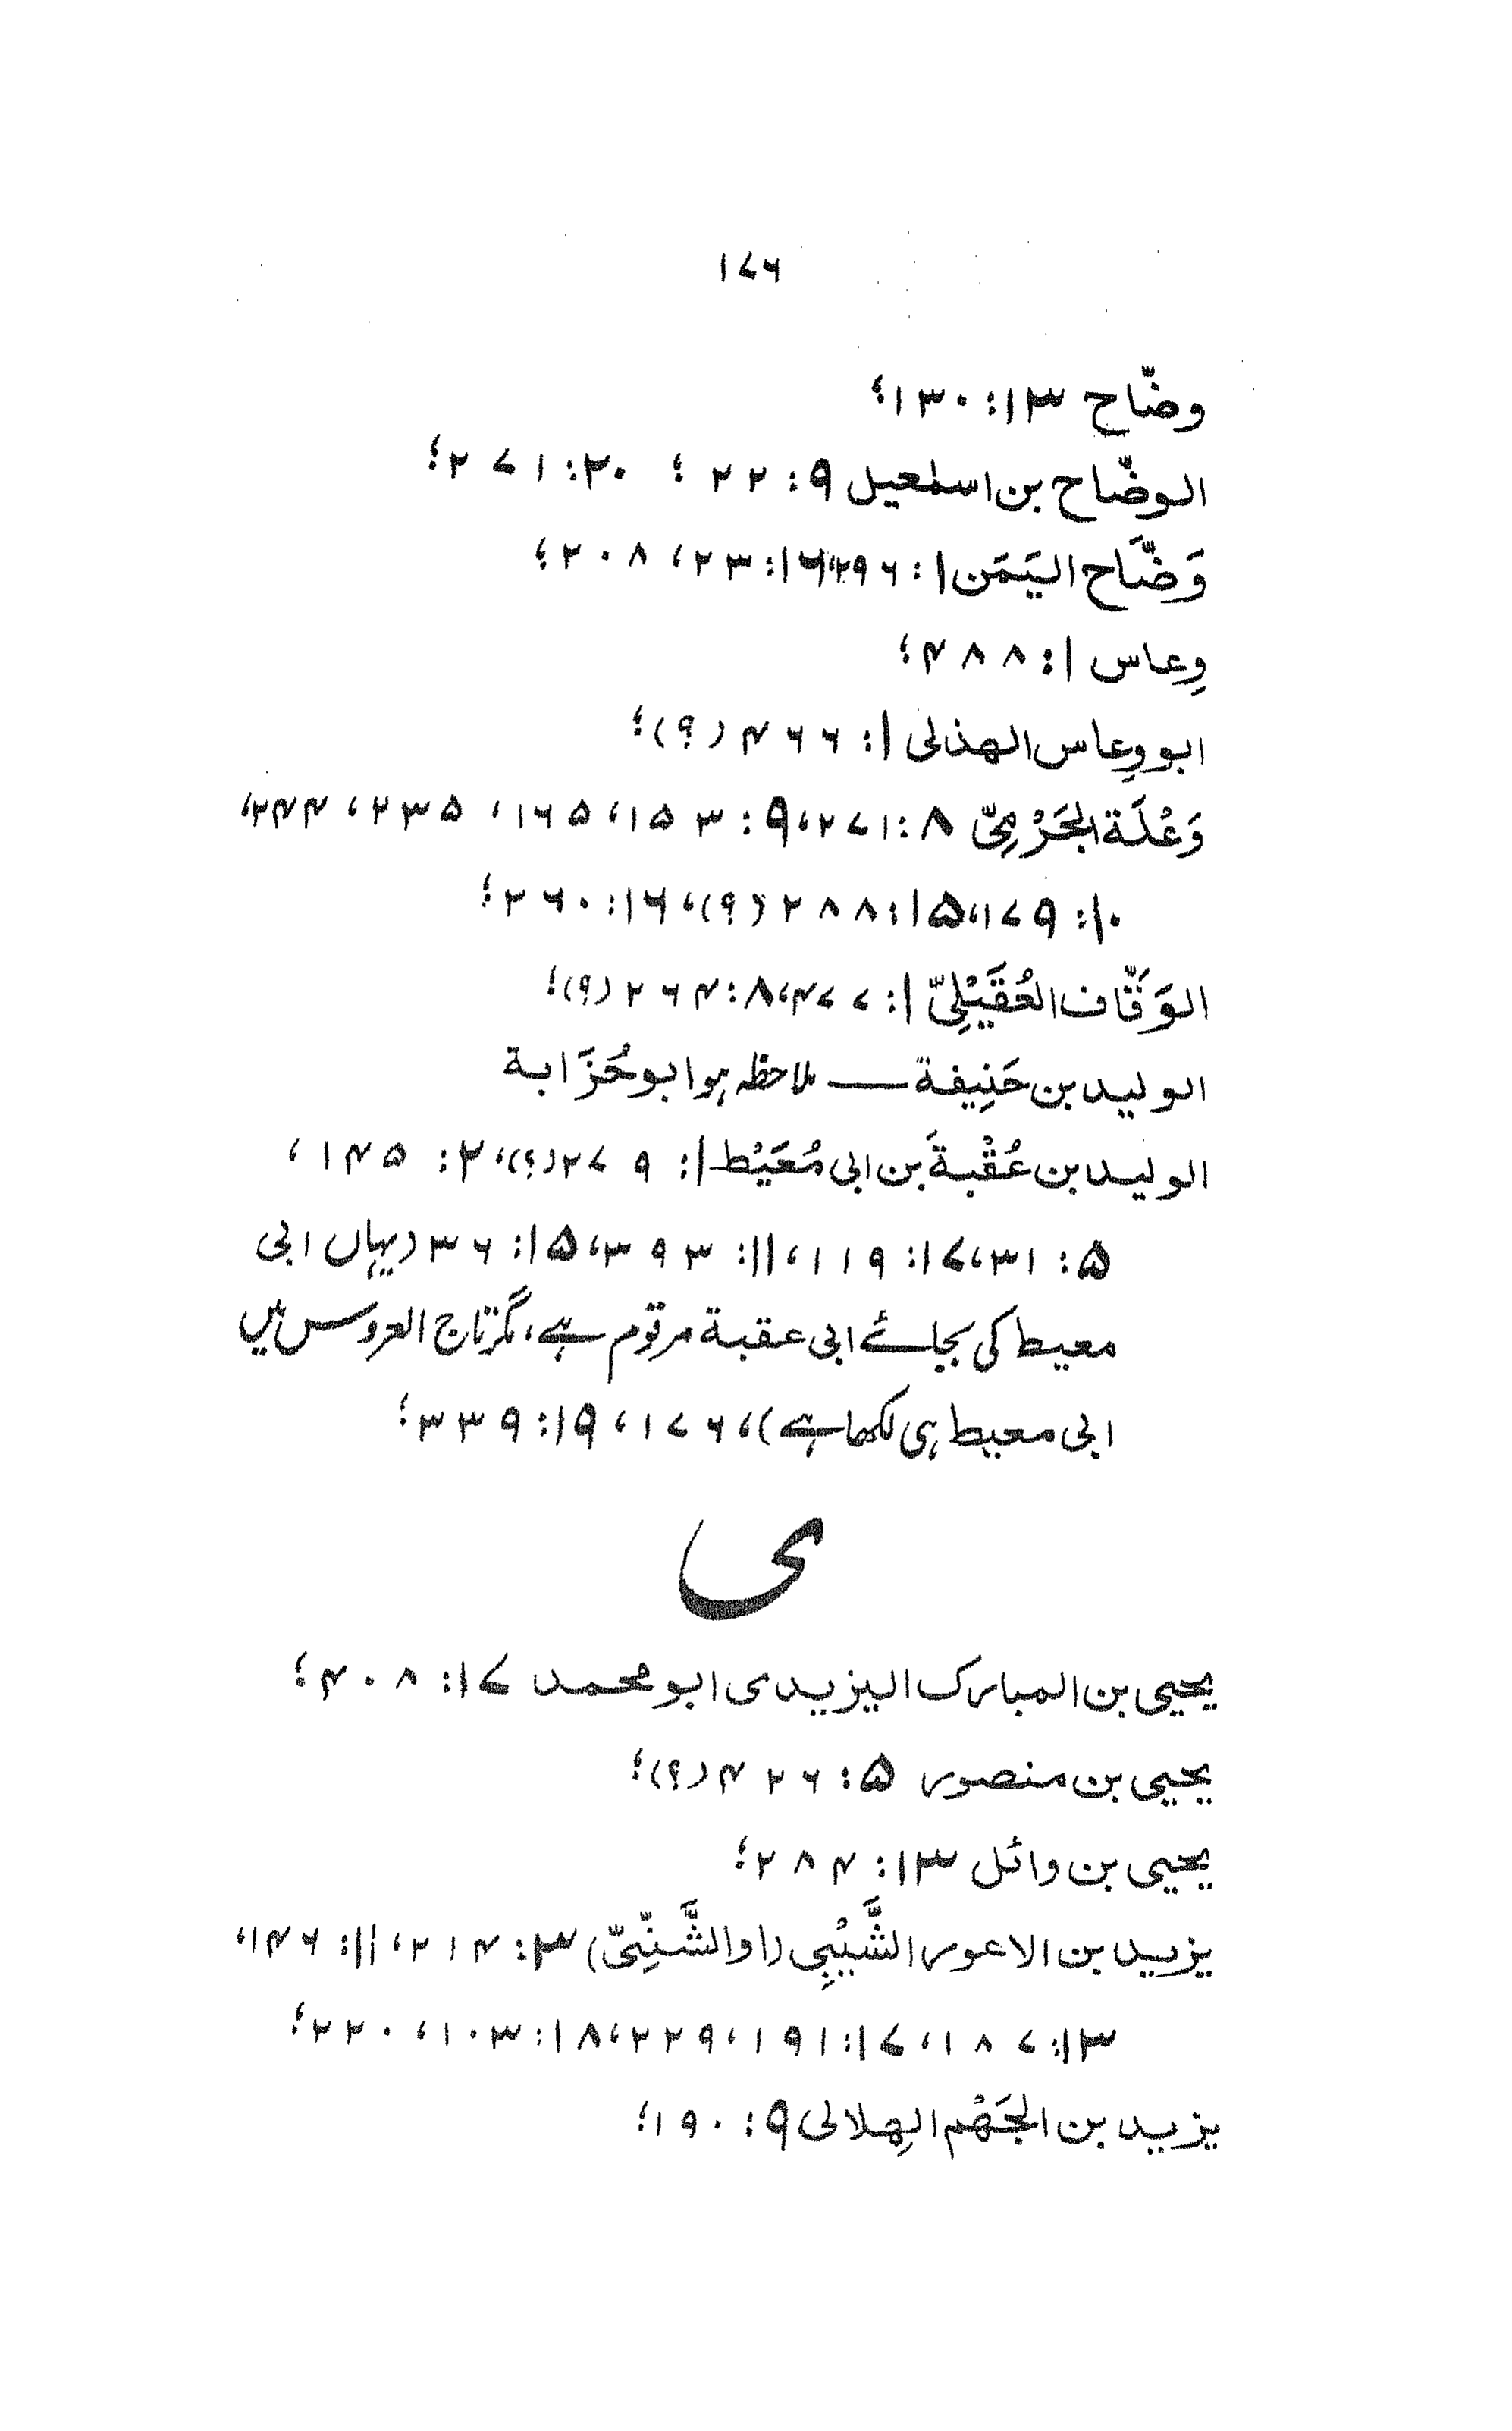 ۱۷۶
وضّاح ۱۳: ۱۳۰؛
الوضّاح بن اسمٰعیل ۹: ۲۲؛ ۲۰: ۲۷۱؛
وَضَّاح الیَمَن ۱: ۲۹۶، ۱۶: ۲۳، ۲۰۸؛
وِعاس ۱: ۴۸۸؛
ابو وِعاس الهذلی ۱: ۴۶۶ (؟)؛
وَعْلَة الجَرْمِیّ ۸: ۲۷۱، ۹: ۱۵۳، ۱۶۵، ۲۳۵، ۲۴۴،
۱۰: ۱۷۹، ۱۵: ۲۸۸ (؟)، ۱۶: ۲۶۰؛
الوَقَّاف العُقَیْلِیّ ۱: ۴۷۷، ۸: ۲۶۴ (؟)؛
الولید بن حَنِیفة — ملاحظہ ہو ابو حُزَابة
الولید بن عُقْبةَ بن ابی مُعَیْط ۱: ۲۷۹ (؟)، ۲: ۱۴۵،
۵: ۳۱، ۱۷: ۱۱۹، ۱۱: ۳۹۳، ۱۵: ۳۶ (یہاں ابی
معیط کی بجائے ابی عقبة مرقوم ہے، مگر تاج العروس میں
ابی معیط ہی لکھا ہے)، ۱۷۶، ۱۹: ۳۳۹؛
ی
یحیی بن المبارک الیزیدی ابو محمد ۱۷: ۴۰۸؛
یحیی بن منصور ۵: ۴۲۶ (؟)؛
یحیی بن وائل ۱۳: ۲۸۴؛
یزید بن الاعور الشَّیْبِی (او الشَّنِّیّ) ۳: ۲۱۴، ۱۱: ۱۴۶،
۱۳: ۱۸۷، ۱۷: ۱۹۱، ۲۲۹، ۱۸: ۱۰۳، ۲۲۰؛
یزید بن الجَهْم الهِلالی ۹: ۱۹۰؛